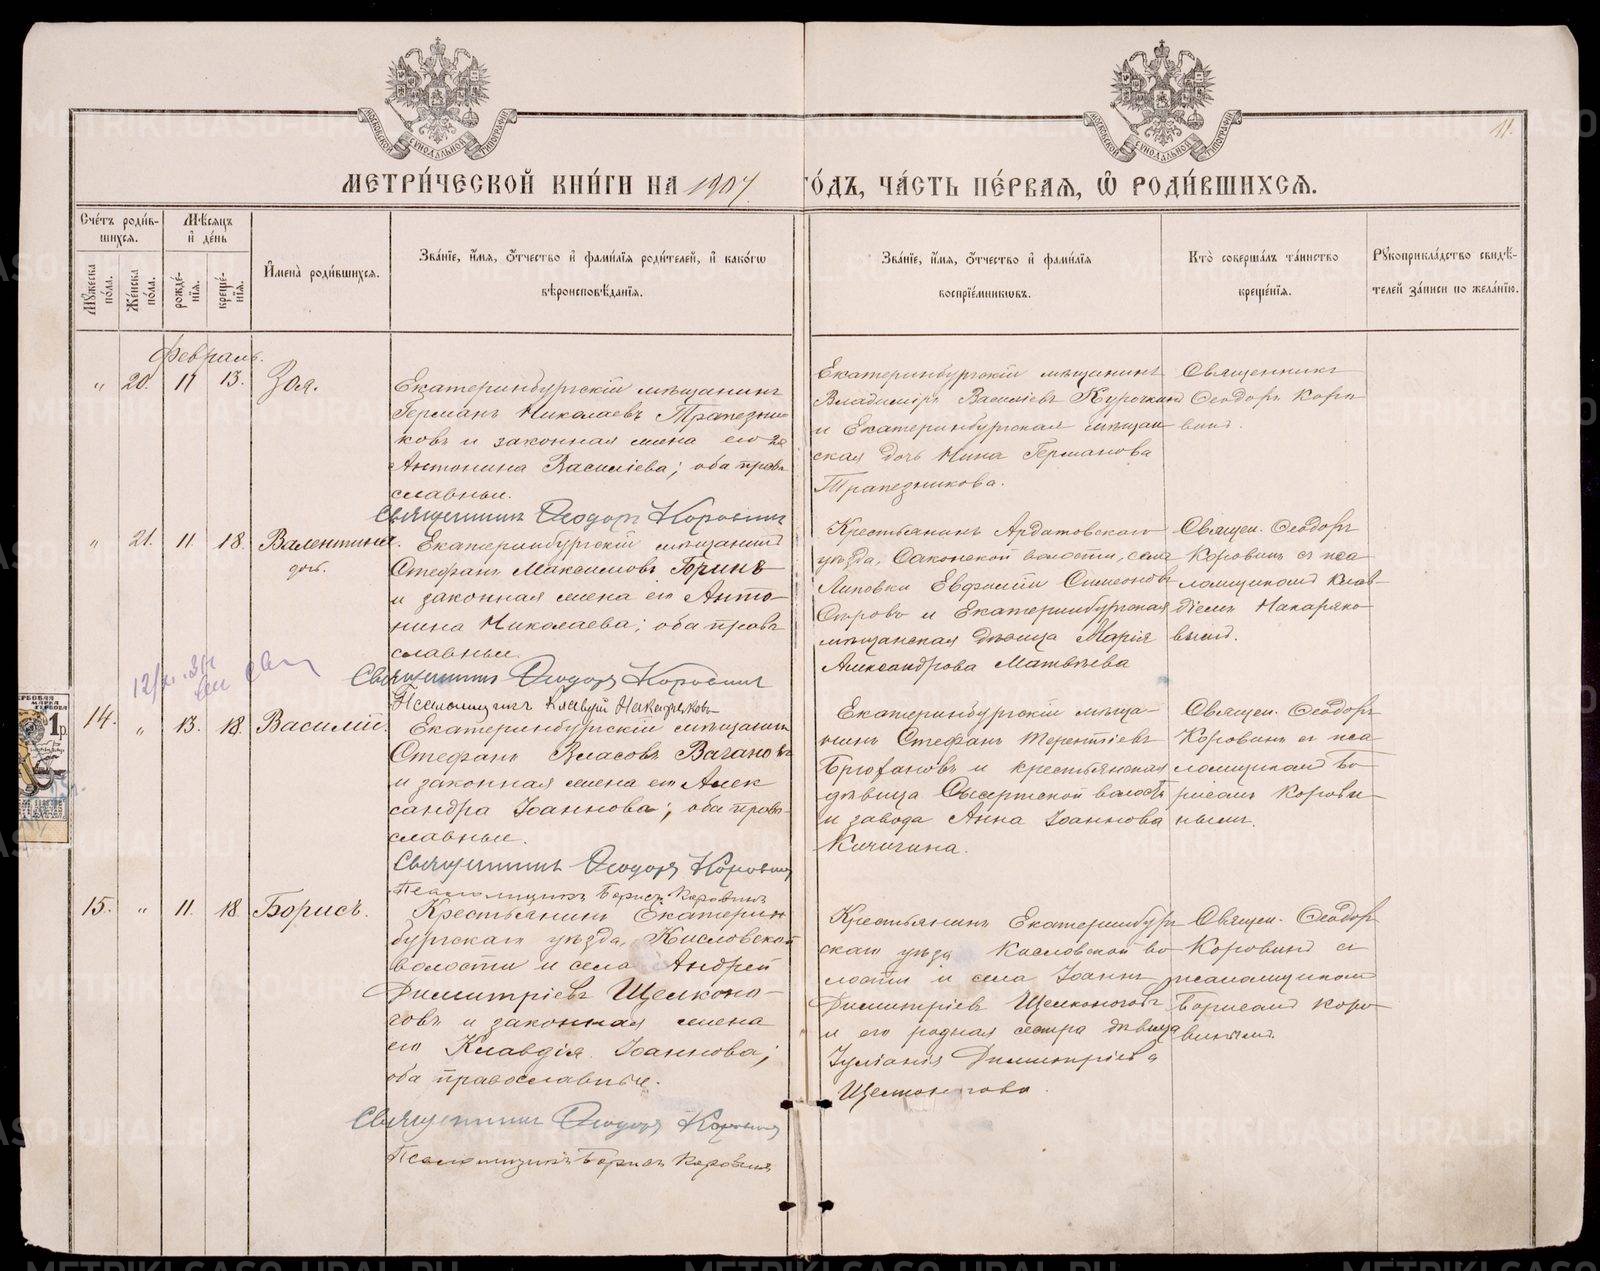 МЕТРИ́ЧЕСКОЙ КНИ́ГИ НА 1907 ГО́ДЪ, ЧА́СТЬ ПЕ́РВАЯ, Ѡ РОДИ́ВШИХСЯ.
11.
Сче́тъ роди́в-
шихся.
Мꙋ́жеска по́ла.
Же́нска по́ла.
Мѣ́сяцъ
и҆ де́нь
рожде́-
нїя.
креще́-
нїя.
И҆мена̀ роди́вшихся.
Зва́нїе, и҆́мя, ѻ҆́тчество и҆ фами́лїѧ роди́телей, и҆ како́гѡ
вѣроисповѣ́данїя.
Зва́нїе, и҆́мя, ѻ҆́тчество и҆ фами́лїя
воспрїе́мникѡвъ.
Кто̀ соверша́лъ та́инство
креще́нїя.
Рꙋкоприкла́дство свидѣ́-
телей за́писи по жела́нїю.
Февраль.
" 20. 11 13. Зоя.
Екатеринбургскій мѣщанинъ
Германъ Николаевъ Трапезни-
ковъ и законная жена его
Антонина Василіева; оба право-
славные.
Священникъ Ѳеодоръ Коровинъ
Екатеринбургскій мѣщанинъ
Владиміръ Василіевъ Курочкинъ
и Екатеринбургская мѣщан
ская дочь Нина Германова
Трапезникова.
Священникъ
Ѳеодоръ Коро
винъ.
" 21. 11. 18. Валентина
дочь.
Екатеринбургскій мѣщанинъ
Стефанъ Максимовъ Горинъ
и законная жена его Анто-
нина Николаева; оба право
славные.
Священникъ Ѳеодоръ Коровинъ
Псаломщикъ Клавдій Макаряковъ
Крестьянинъ Ардатовскаго
уѣзда, Саконской волости, села
Липовки Евфимій Симеоновъ
и Екатеринбургская
мѣщанская дѣвица Марія
Александрова Матвѣева
Священ. Ѳеодоръ
Коровинъ съ пса
ломщикомъ Клав-
діемъ Макаряко-
вымъ.
14. " 13. 18. Василій.
Екатеринбургскій мѣщанинъ
Стефанъ Власовъ Вагановъ
и законная жена его Алек
сандра Іоаннова; оба право-
славные.
Священникъ Ѳеодоръ Коровинъ
Псаломщикъ Борисъ Коровинъ
Екатеринбургскій мѣща-
нинъ Стефанъ Терентіевъ
Брюхановъ и крестьянская
дѣвица Сысертской волости
и завода Анна Іоаннова
Кичигина.
Священ. Ѳеодоръ
Коровинъ съ пса
ломщикомъ Бо-
рисомъ Корови-
нымъ.
15. " 11. 18. Борисъ.
Крестьянинъ Екатерин
бургскаго уѣзда, Кисловской
волости и села Андрей
Димитріевъ Щелконо-
говъ и законная жена
его Клавдія Іоаннова;
оба православные.
Священникъ Ѳеодоръ Коровинъ
Псаломщикъ Борисъ Коровинъ
Крестьянинъ Екатеринбург
скаго уѣзда Кисловской во
лости и села Іоаннъ
Димитріевъ Щелконоговъ
и его родная сестра дѣвица
Іуліанія Димитріева
Щелконогова.
Священ. Ѳеодоръ
Коровинъ съ
псаломщикомъ
Борисомъ Коро-
винымъ.
1р.
METRIKI.GASO-URAL.RU